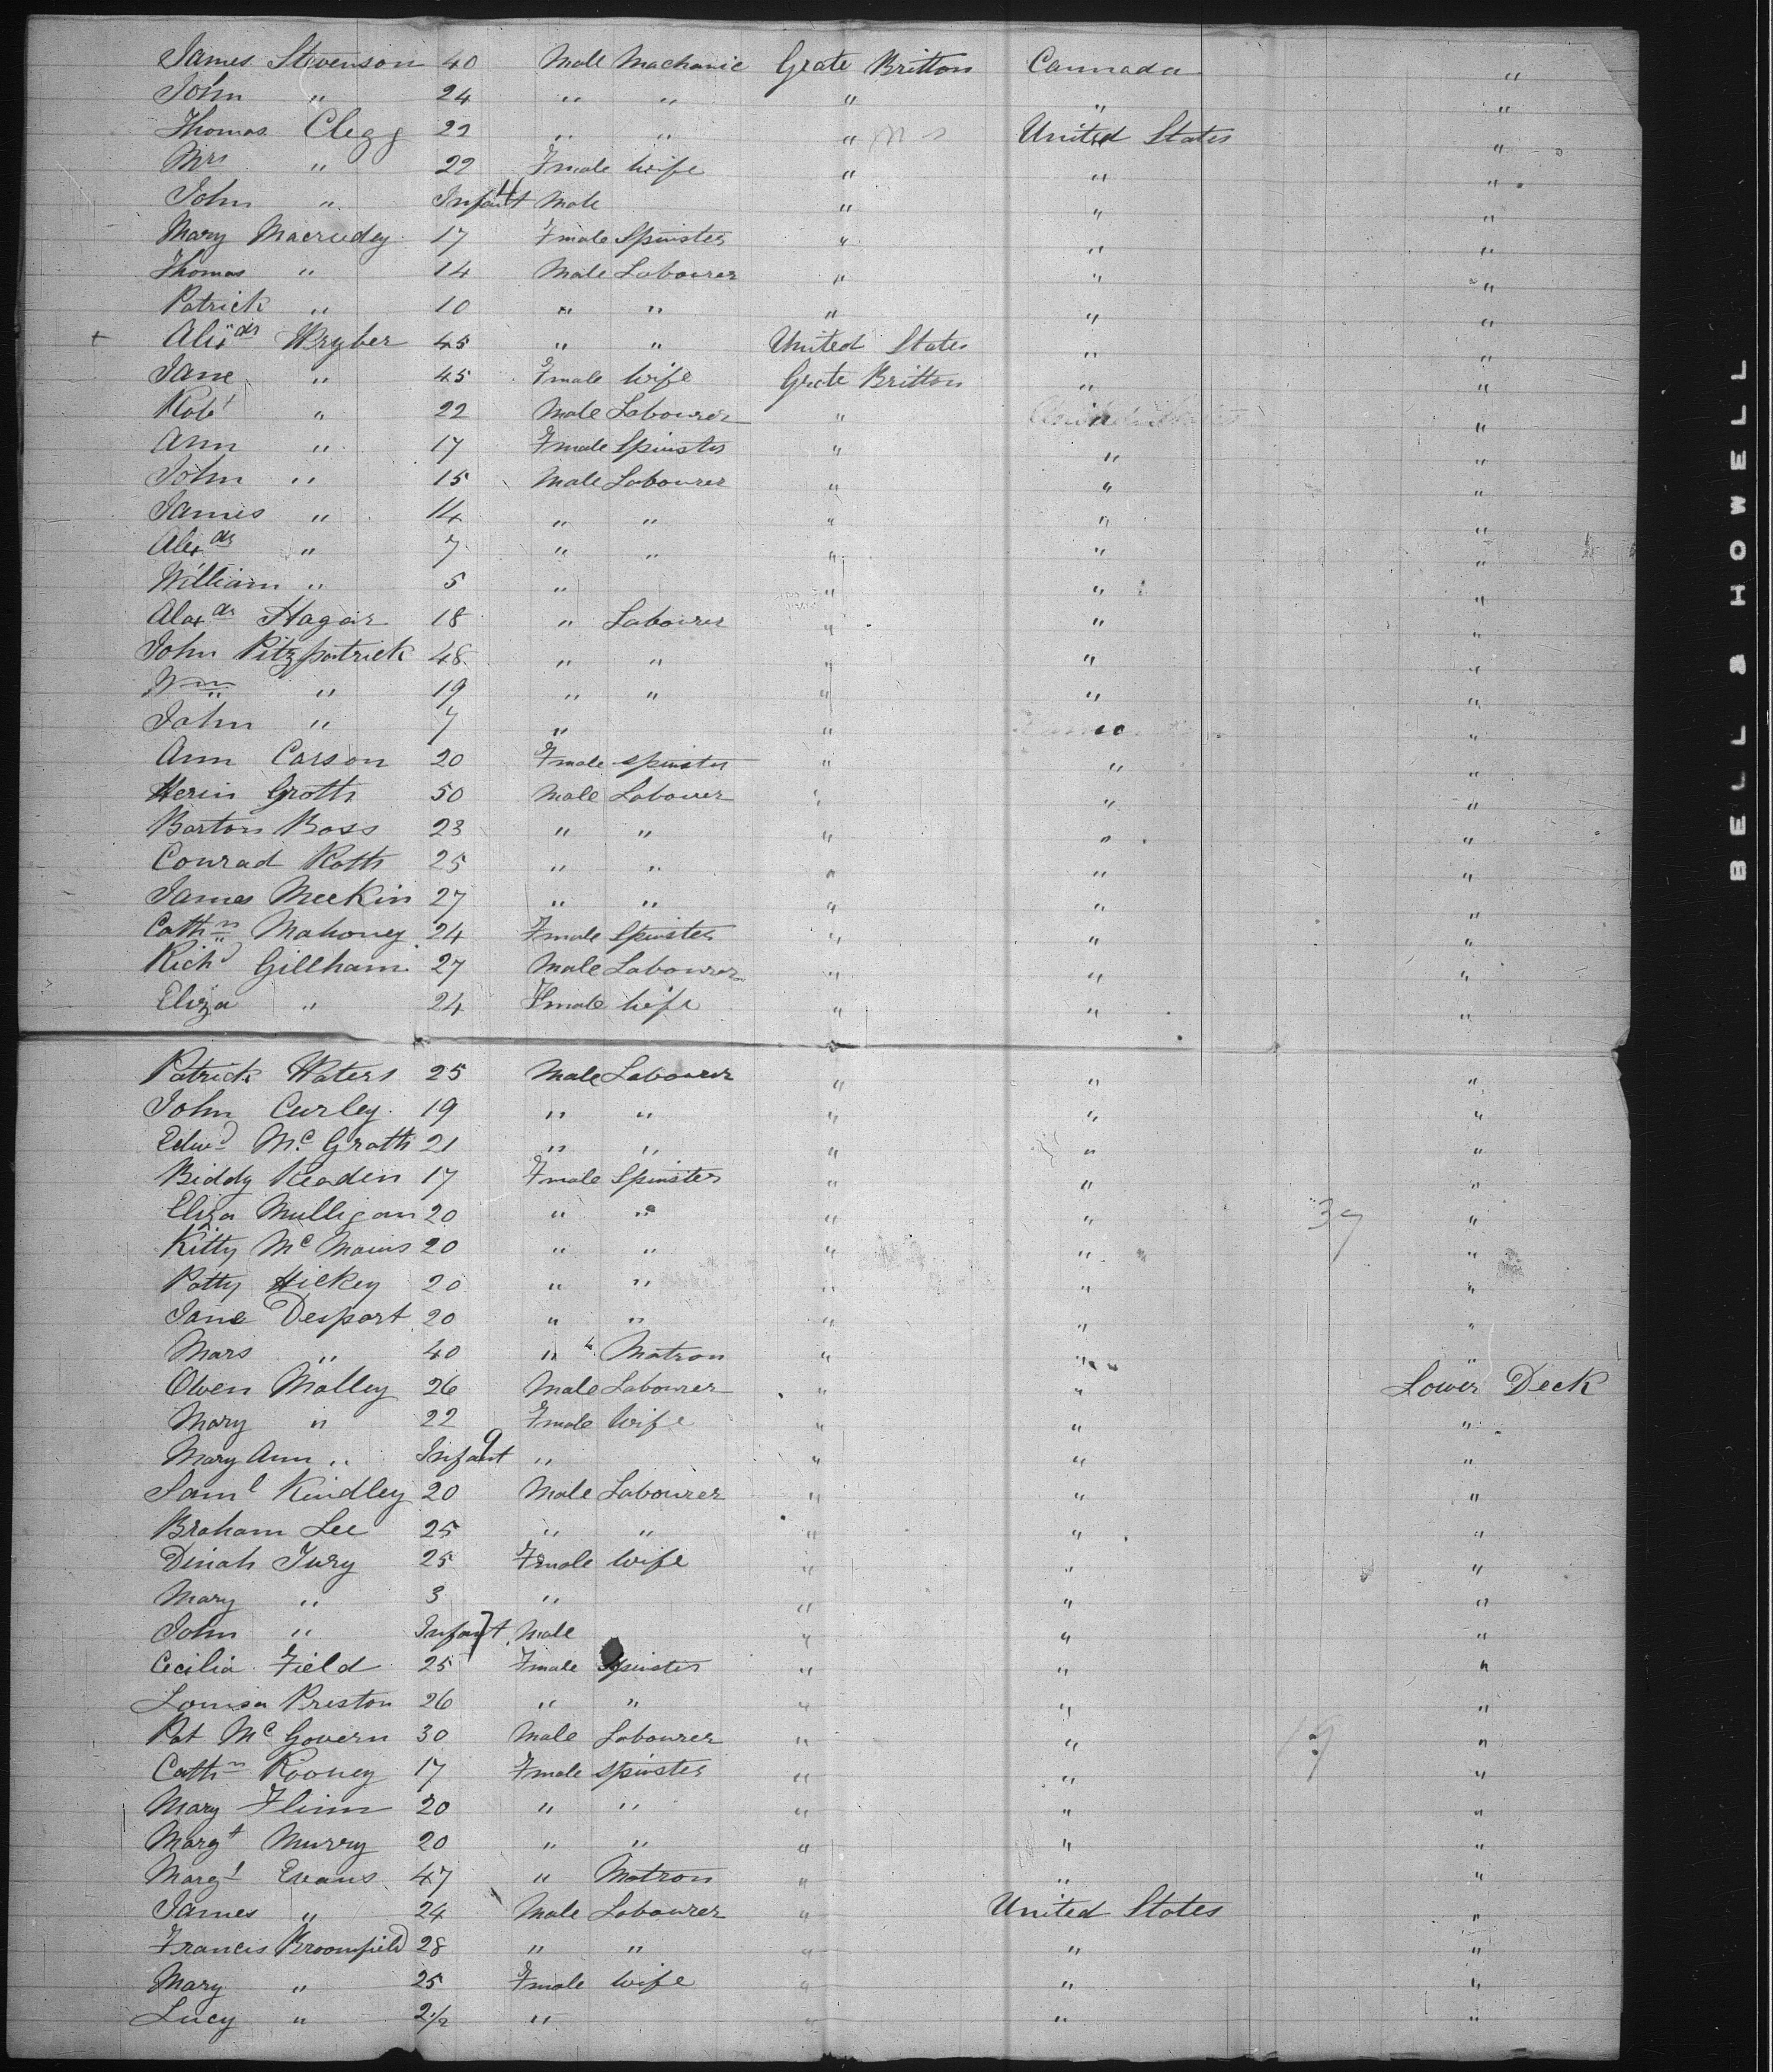 James Stevenson 40 Male Machanic Grate Britton Cannada "
John " 24 " " " " "
Thomas Clegg 22 " " " United States "
Mrs " 22 Fmale Wife " " "
John " Infant 4 Male " " "
Mary Macrudey 17 Fmale Spinster " " "
Thomas " 14 Male Labourer " " "
Patrick " 10 " " " " "
+ Alixdr Wryber 45 " " United States " "
Jane " 45 Fmale Wife Grate Britton " "
Robt " 22 Male Labourer " "
Ann " 17 Fmale Spinster " " "
John " 15 Male Labourer " " "
James " 14 " " " " "
Alexdr " 7 " " " " "
William " 5 " " " "
Alexdr Hagar 18 " Labourer " " "
John Fitzpatrick 48 " " " " "
Wm " 19 " " " " "
John " 7 " " "
Ann Carson 20 Fmale spinster " " "
Herin Groth 50 Male Labouer " " "
Barton Boss 23 " " " " "
Conrad Roth 25 " " " " "
James Meekin 27 " " " " "
Cathn Mahoney 24 Fmale Spinster " " "
Richd Gillham 27 Male Labourer " " "
Eliza " 24 Fmale Wife " " "
Patrick Waters 25 Male Labourer " " "
John Curley 19 " " " " "
Edwd Mc Grath 21 " " " " "
Biddy Readen 17 Fmale Spinster " " "
Eliza Mulligan 20 " " " " 39 "
Kitty Mc Mains 20 " " " " "
Patty Hickey 20 " " " " "
Jane Desport 20 " " " " "
Mars " 40 " Matron " " "
Owen Malley 26 Male Labourer " " Lower Deck
Mary " 22 Fmale Wife " " "
Mary Ann " Infant 9 " " " "
Saml Kindley 20 Male Labourer " " "
Braham Lee 25 " " " " "
Dinah Jury 25 Fmale Wife " " "
Mary " 3 " " " "
John " Infant 7 Male " " "
Cecilia Field 25 Fmale Spinster " " "
Louisa Preston 26 " " " " "
Pat Mc Govern 30 Male Labourer " " 19 "
Cathn Rooney 17 Fmale spinster " " "
Mary Flinn 20 " " " " "
Margt Murry 20 " " " " "
Margt Evans 47 " Matron " " "
James " 24 Male Labourer " United States "
Francis Broomfield 28 " " " " "
Mary " 25 Fmale Wife " " "
Lucy " 2½ " " " "
BELL & HOWELL